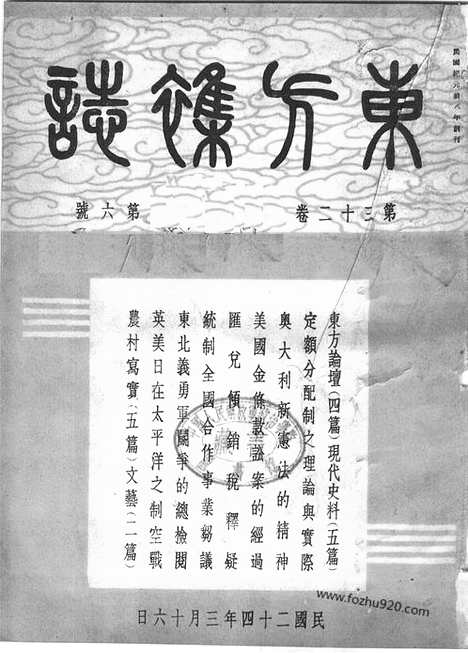 東方雜誌
民國紀元前八年創刊
第三十二卷
第六號
東方論壇(四篇)現代史料(五篇)
定額分配制之理論與實際
奧大利新憲法的精神
美國金條款訟案的經過
匯兌傾銷稅釋疑
統制全國合作事業芻議
東北義勇軍鬭爭的總檢閱
英美日在太平洋之制空戰
農村寫實(五篇)文藝(二篇)
民國二十四年三月十六日
www.fozhu920.com